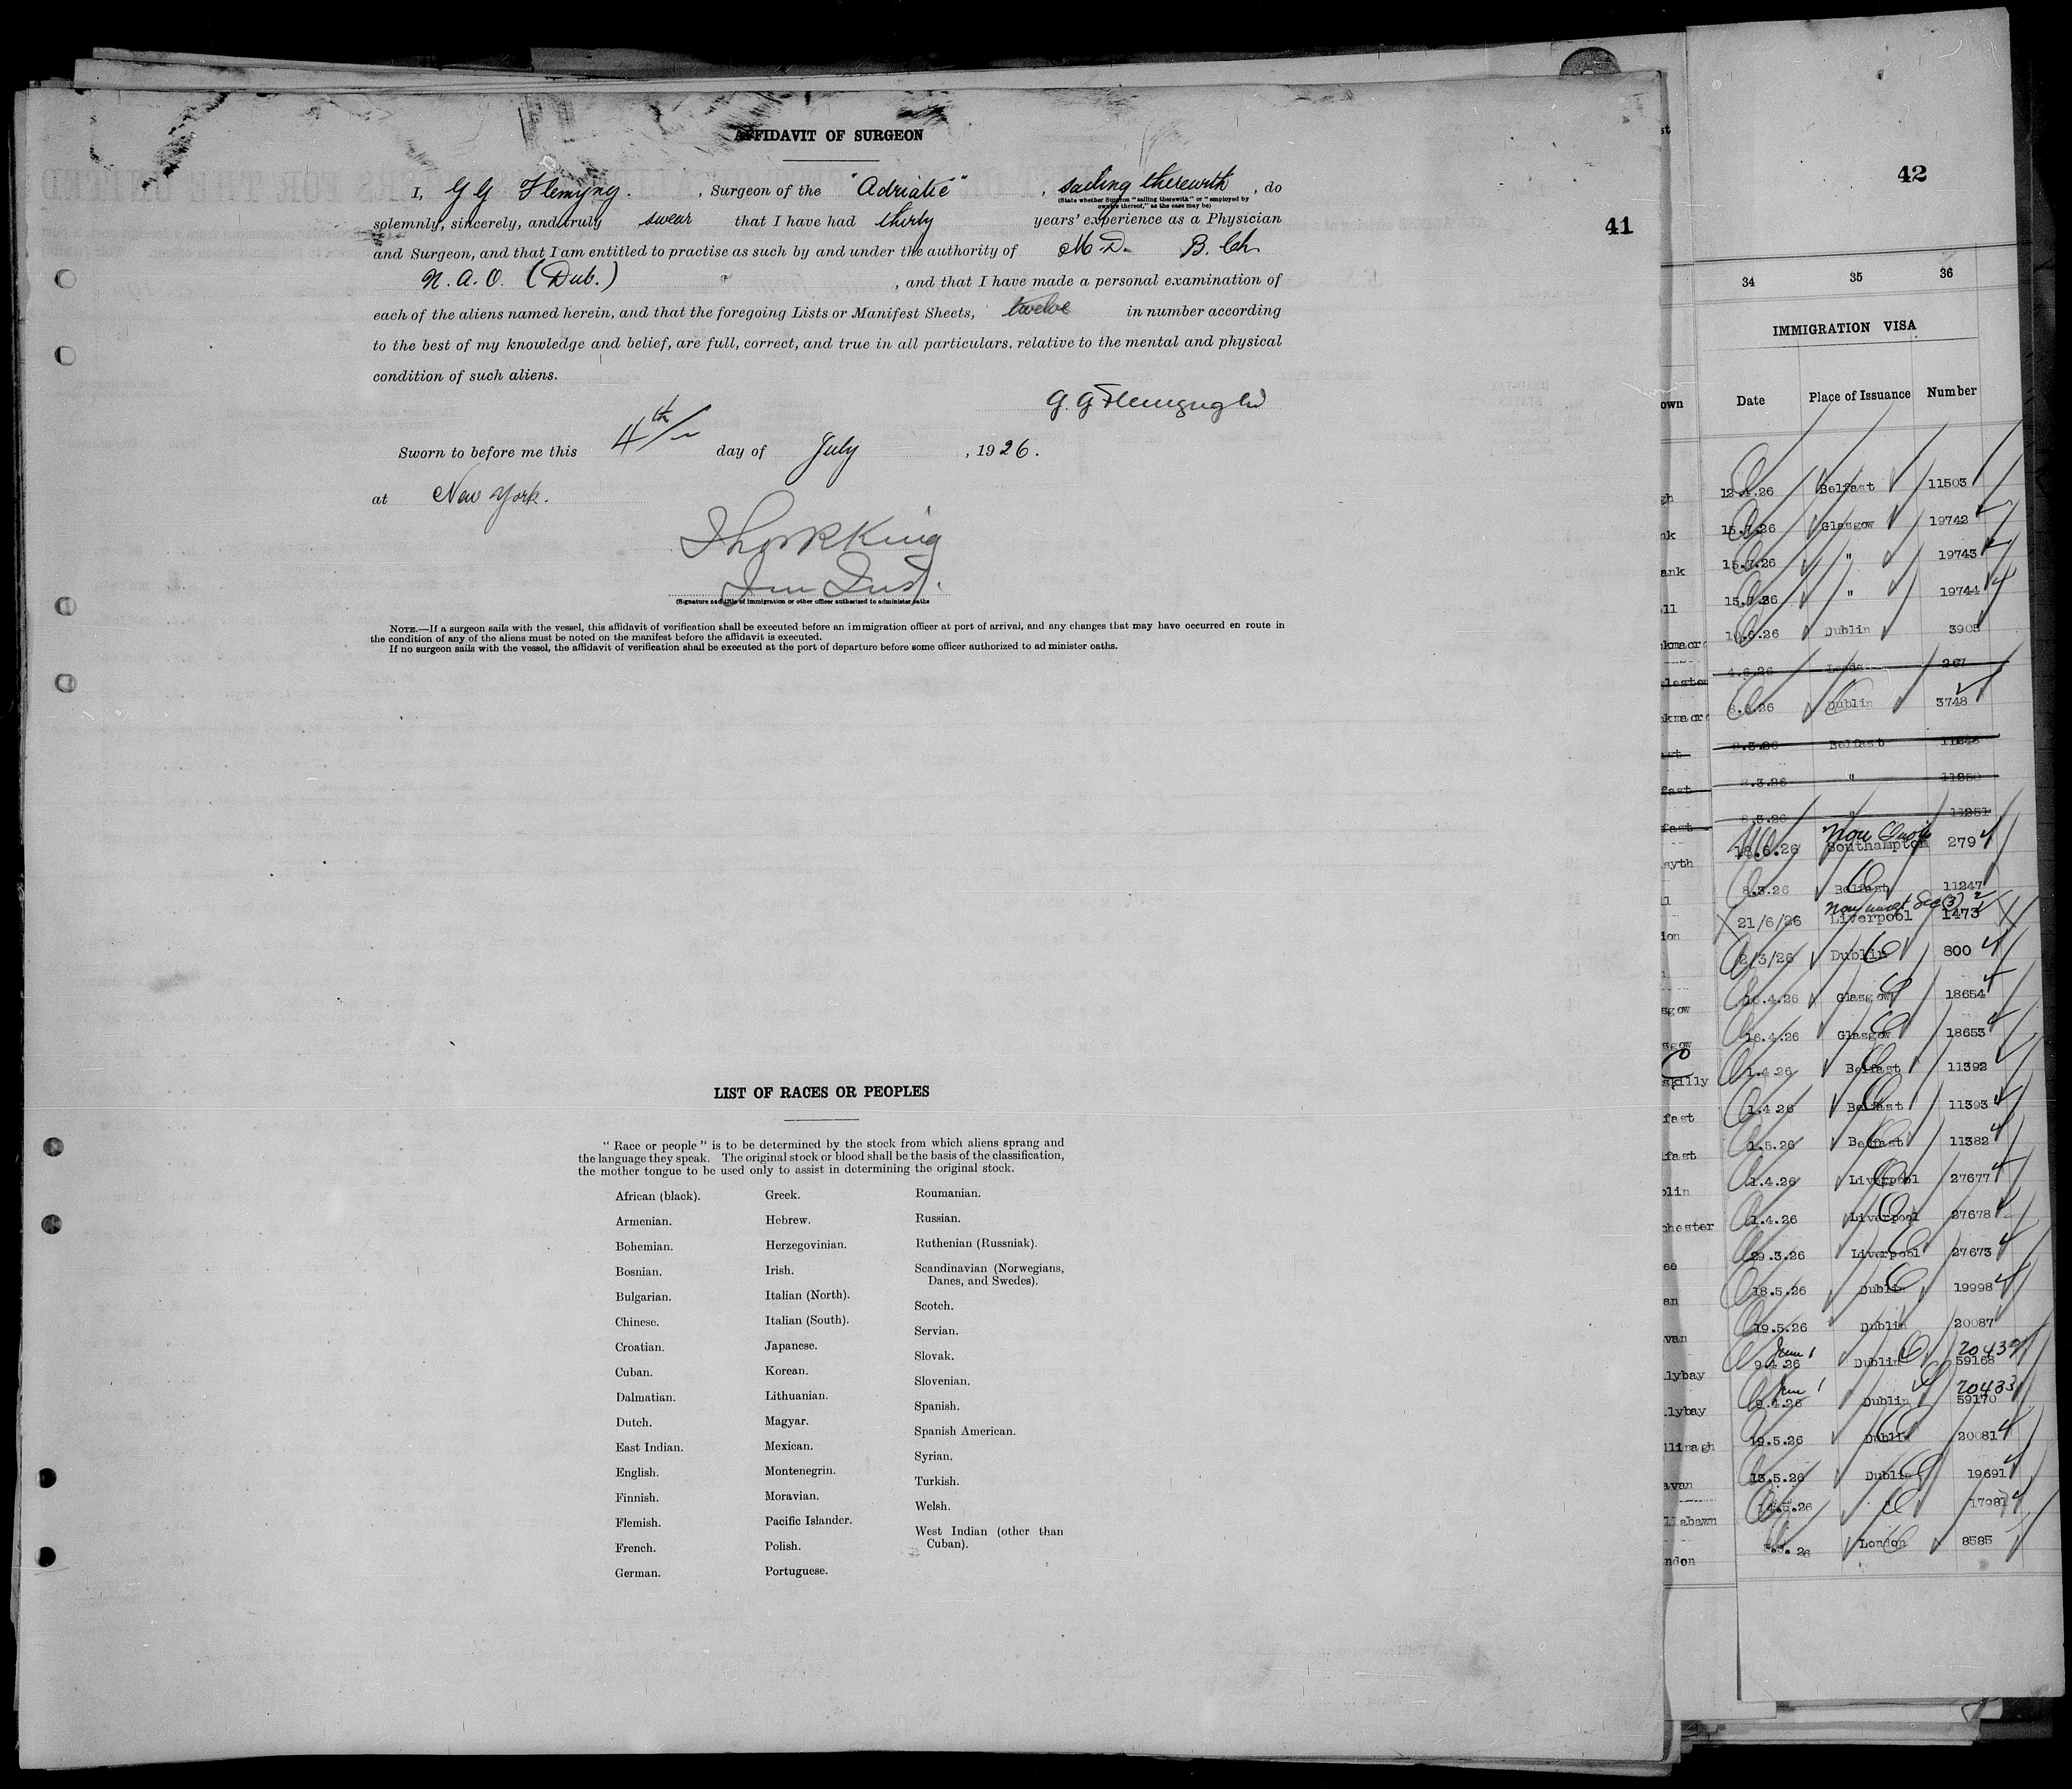 AFFIDAVIT OF SURGEON
I, G G Flemyng. , Surgeon of the "Adriatic" , sailing therewith , do
(State whether Surgeon "sailing therewith" or "employed by
owners thereof," as the case may be)
solemnly, sincerely, and truly swear that I have had thirty years' experience as a Physician
and Surgeon, and that I am entitled to practise as such by and under the authority of M.D. B. Ch
(Dub.) , and that I have made a personal examination of
each of the aliens named herein, and that the foregoing Lists or Manifest Sheets, twelve in number according
to the best of my knowledge and belief, are full, correct, and true in all particulars, relative to the mental and physical
condition of such aliens.
Sworn to before me this 4th day of July , 1926.
at New York.
(Signature and title of immigration or other officer authorized to administer oaths
NOTE.—If a surgeon sails with the vessel, this affidavit of verification shall be executed before an immigration officer at port of arrival, and any changes that may have occurred en route in
the condition of any of the aliens must be noted on the manifest before the affidavit is executed.
If no surgeon sails with the vessel, the affidavit of verification shall be executed at the port of departure before some officer authorized to ad minister oaths.
LIST OF RACES OR PEOPLES
"Race or people" is to be determined by the stock from which aliens sprang and
the language they speak. The original stock or blood shall be the basis of the classification,
the mother tongue to be used only to assist in determining the original stock.
African (black).
Armenian.
Bohemian.
Bosnian.
Bulgarian.
Chinese.
Croatian.
Cuban.
Dalmatian.
Dutch.
East Indian.
English.
Finnish.
Flemish.
French.
German.
Greek.
Hebrew.
Herzegovinian.
Irish.
Italian (North).
Italian (South).
Japanese.
Korean.
Lithuanian.
Magyar.
Mexican.
Montenegrin.
Moravian.
Pacific Islander.
Polish.
Portuguese.
Roumanian.
Russian.
Ruthenian (Russniak).
Scandinavian (Norwegians,
Danes, and Swedes).
Scotch.
Servian.
Slovak.
Slovenian.
Spanish.
Spanish American.
Syrian.
Turkish.
Welsh.
West Indian (other than
Cuban).
41
42
34 35 36
IMMIGRATION VISA
own Date Place of Issuance Number
gh 12.4.26 Belfast 11503
nk 15.7.26 Glasgow 19742
ank 15.7.26 " 19743
ll 15.7.26 " 19744
kmacre 10.6.26 Dublin 3903
leston 4.6.26 Leeds 267
kmacre 8.6.26 Dublin 3748
ast 8.3.26 Belfast
fast 8.3.26 " 11250
fast 8.3.26 " 11251
Non Quota
syth 18.6.26 Southampton 279
l 8.3.26 Belfast 11247
Sec (3) 2
don 21/6/26 Liverpool 1473
2/3/26 Dublin 800
sgow 16.4.26 Glasgow 18654
sgow 16.4.26 Glasgow 18653
skilly 1.4.26 Belfast 11392
fast 1.4.26 Belfast 11393
fast 1.5.26 Belfast 11382
blin 1.4.26 Liverpool 27677
hester 1.4.26 Liverpool 27678
ee 29.3.26 Liverpool 27673
an 18.5.26 Dublin 19998
van 19.5.26 Dublin 20087
June 1 20432
lybay 9.4.26 Dublin 59168
June 1 20433
lybay 9.4.26 Dublin 59170
llinagh 19.5.26 Dublin 20081
avan 13.5.26 Dublin 19691
llabawn 14.5.26 " 17981
ndon London 8585